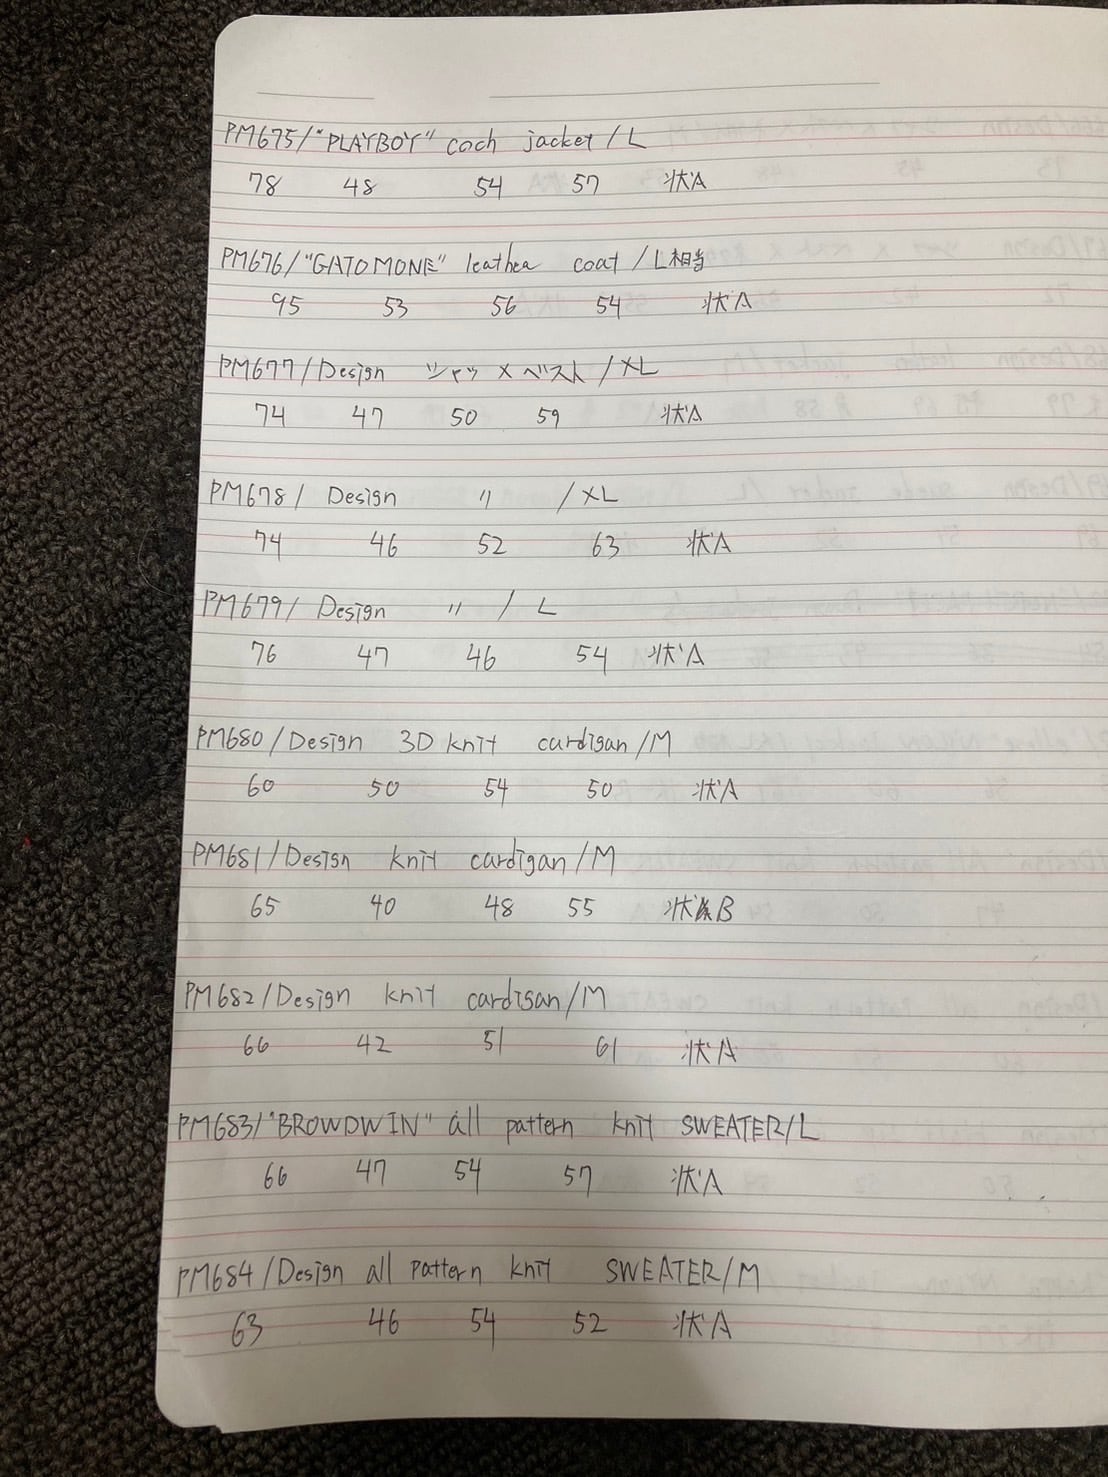 PM675/"PLAYBOY" coch jacket/L
78 48 54 57 状A
PM676/"GATOMONE" leathea coat/L相当
95 53 56 54 状A
PM677/Design シャツ×ベスト/XL
74 47 50 59 状A
PM678/Design 〃 /XL
74 46 52 63 状A
PM679/Design 〃 /L
76 47 46 54 状A
PM680/Design 3D knit cardigan/M
60 50 54 50 状A
PM681/Design knit cardigan/M
65 40 48 55 状B
PM682/Design knit cardigan/M
66 42 51 61 状A
PM683/"BROWDWIN" all pattern knit SWEATER/L
66 47 54 57 状A
PM684/Design all pattern knit SWEATER/M
63 46 54 52 状A